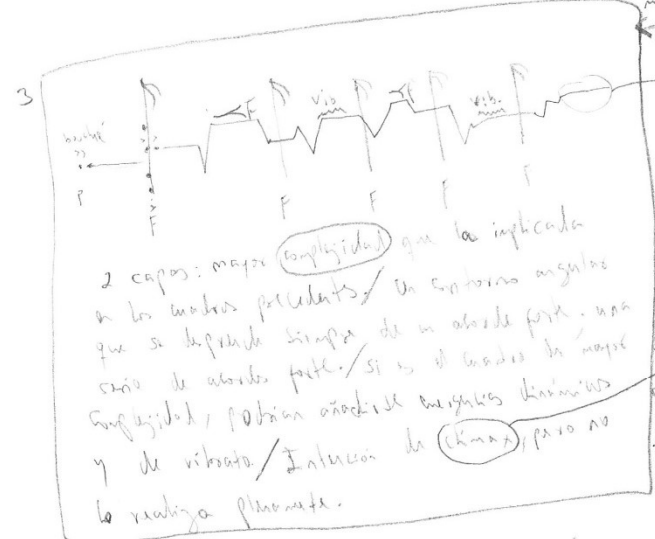 3
F vib F vib.
P F F F F F
2 capas: mayor complejidad que la implicada
en los cuadros precedentes / un contorno angular
que se desprende siempre de un acorde forte. una
serie de acordes forte. / si es el cuadro de mayor
complejidad, podrían añadirse energías dinámicas
y de vibrato / Intención de clímax, pero no
lo realiza plenamente.